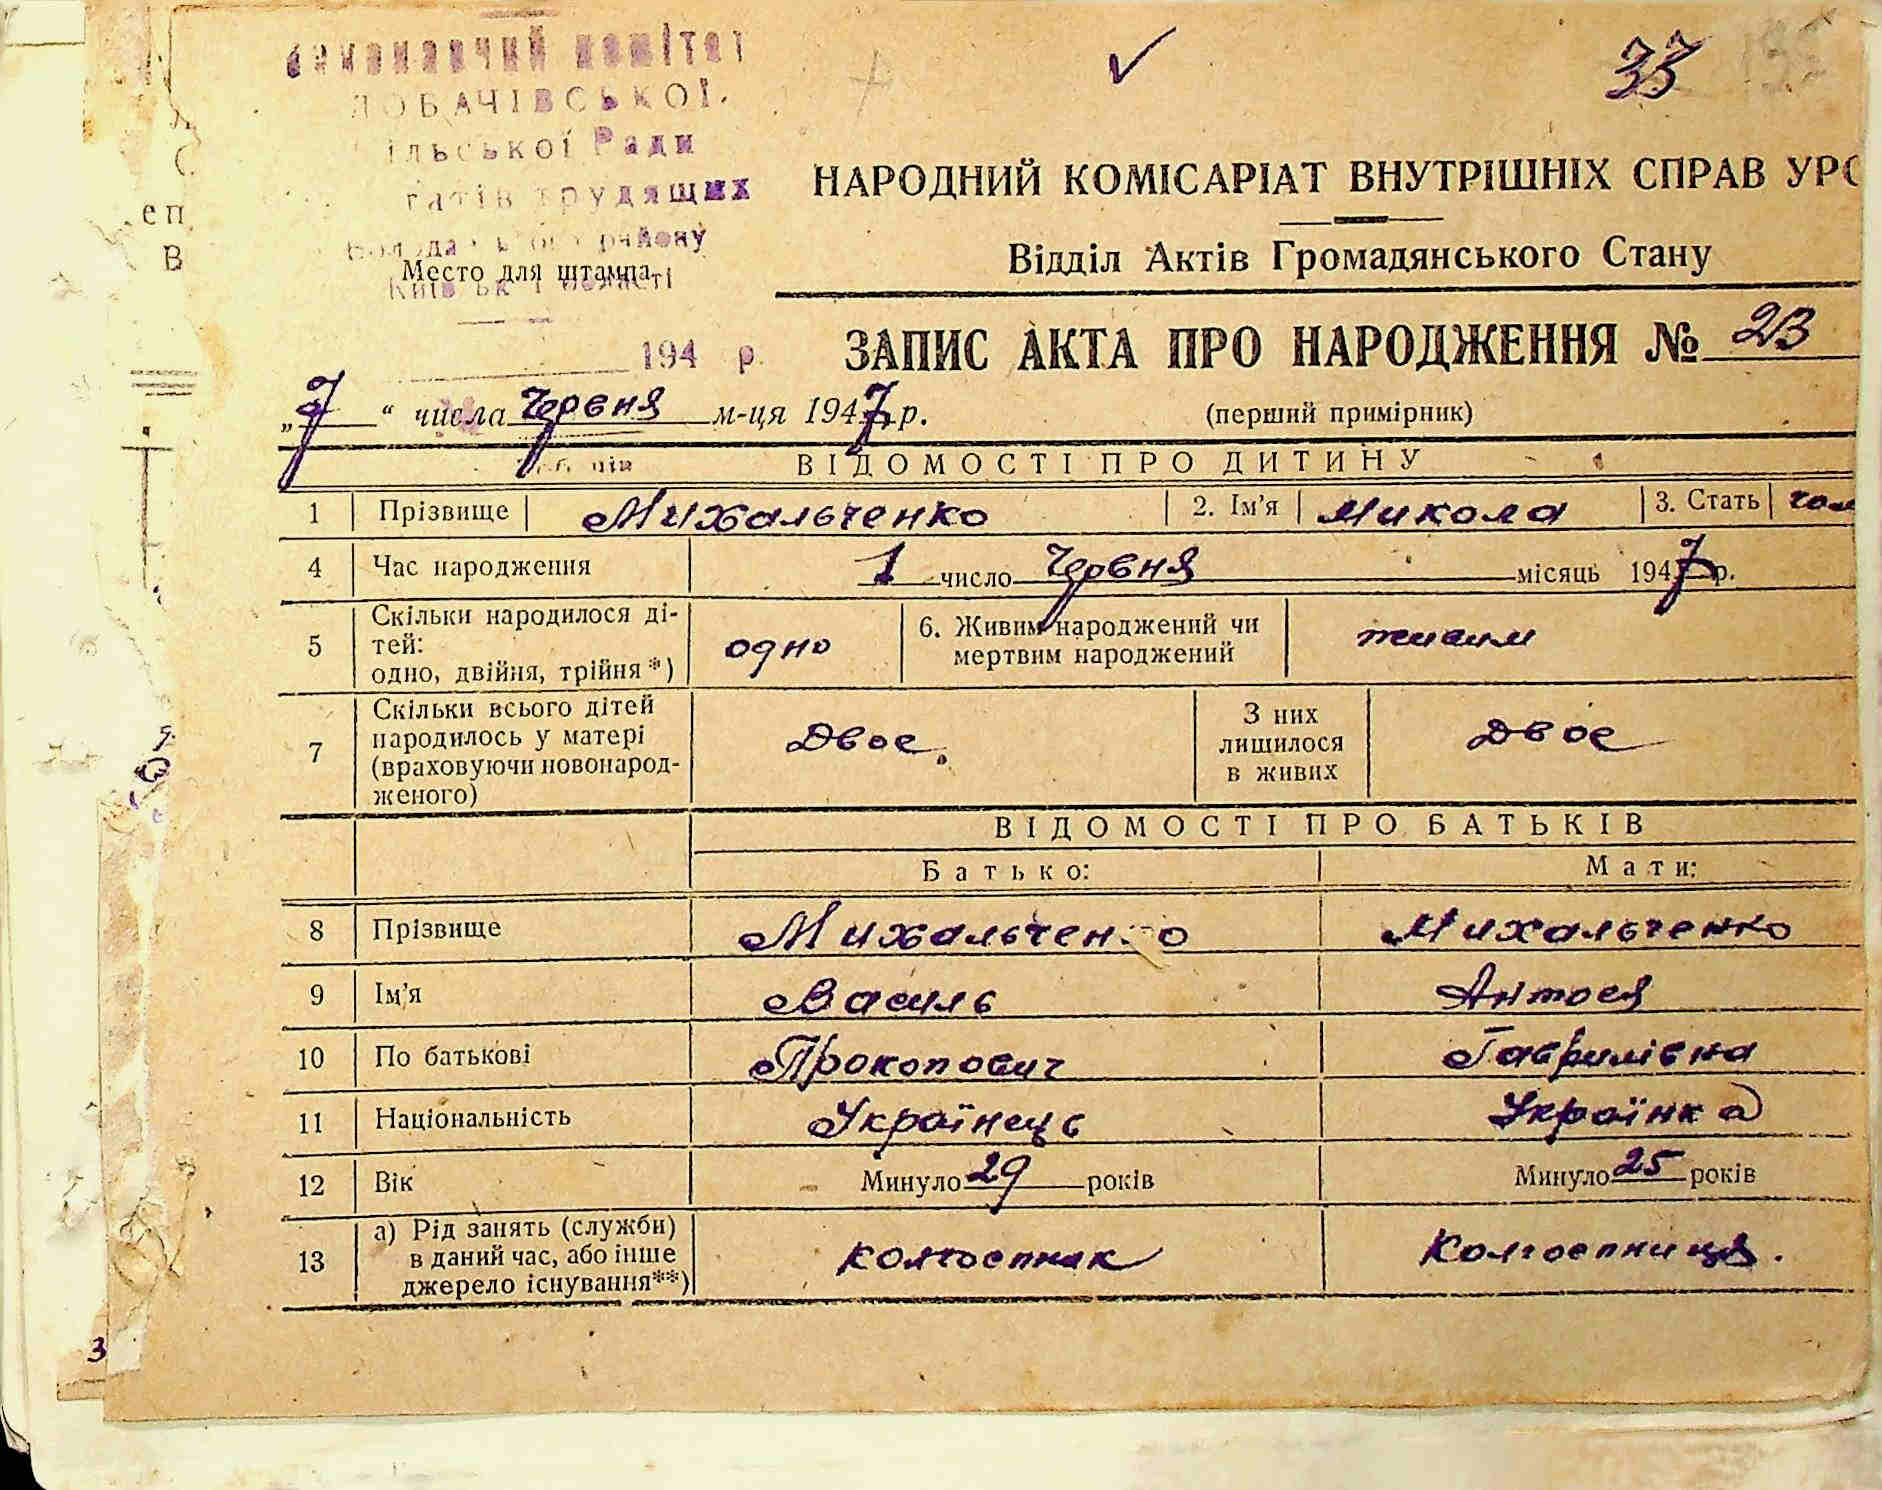 виконавчий комітет
ЛОБАЧІВСЬКОЇ
ільської Ради
трудящих
району
Место для штампа
області
33
НАРОДНИЙ КОМІСАРІАТ ВНУТРІШНІХ СПРАВ УРС
Відділ Актів Громадянського Стану
194 р.
ЗАПИС АКТА ПРО НАРОДЖЕННЯ № 23
„7“ числа Червня м-ця 1947 р. (перший примірник)
ВІДОМОСТІ ПРО ДИТИНУ
1 Прізвище Михальченко 2. Ім'я Микола 3. Стать чол
4 Час народження 1 число Червня місяць 1947 р.
5 Скільки народилося ді-
тей:
одно, двійня, трійня *) одно 6. Живим народжений чи
мертвим народжений живим
7 Скільки всього дітей
народилось у матері
(враховуючи новонарод-
женого) Двоє. З них
лишилося
в живих Двоє
ВІДОМОСТІ ПРО БАТЬКІВ
Батько: Мати:
8 Прізвище Михальченко Михальченко
9 Ім'я Василь Антося
10 По батькові Прокопович Гаврилівна
11 Національність Українець Українка
12 Вік Минуло 29 років Минуло 25 років
13 а) Рід занять (служби)
в даний час, або інше
джерело існування**) колгоспник Колгоспниця.
еп
В
З